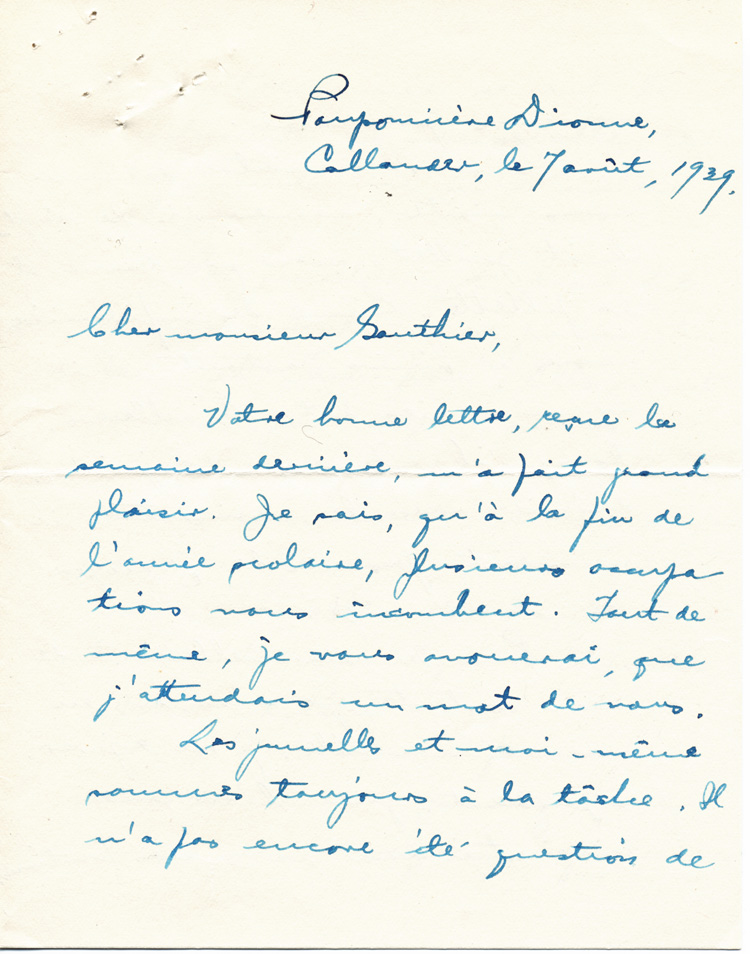 Pouponnière Dionne,
Callander, le 7 août, 1939.
Cher monsieur Gauthier,
Votre bonne lettre, reçue la
semaine dernière, m'a fait grand
plaisir. Je sais, qu'à la fin de
l'année scolaire, plusieurs occupa
tions vous incombent. Tout de
même, je vous avouerai, que
j'attendais un mot de vous.
Les jumelles et moi-même
sommes toujours à la tâche. Il
n'a pas encore été question de